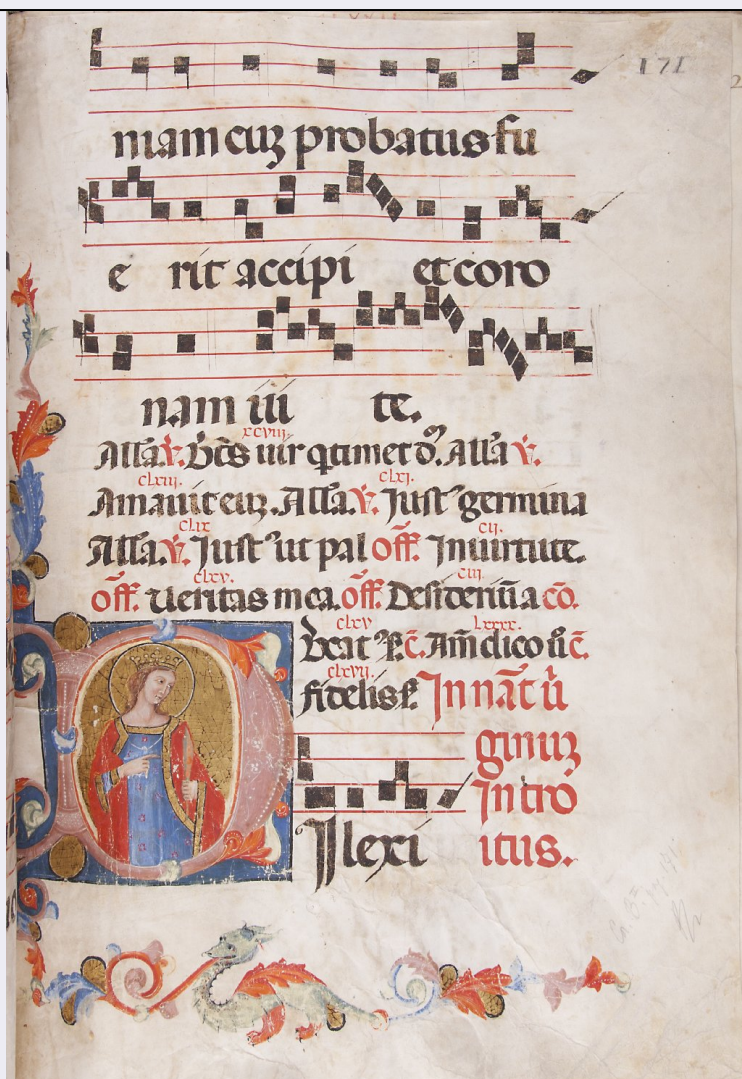 171
niam cuz probatus fu
e rit accipi et coro
nam iii te.
xcviii.
Alla. v. Bts uir qtimet d. Alla v.
clxiii. clxi.
Amauit euz. Alla. v. Just germina
clix cii.
Alla. v. Just ut pal off. Inuirtute.
clxv. ciii
off. Ueritas mea. off. Desideriu a co.
clxv lxxxx.
Beat s. c. Am dico u c.
clxvii.
fidelis s. In nat u
ginuz
Intro
Ilexi itus.